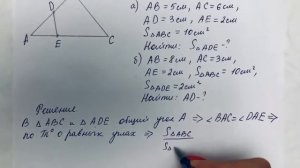 D
A
E
C
а) AB = 5см, AC = 6см,
AD = 3см, AE = 2см
S△ABC = 10см²
Найти: S△ADE - ?
б) AB = 8см, AC = 3см,
AE = 2см, S△ABC = 10см²,
S△ADE = 2см²
Найти: AD - ?
Решение
В △ABC и △ADE общий угол A ⇒ ∠BAC = ∠DAE ⇒
по Th о равных углах ⇒ S△ABC
S△